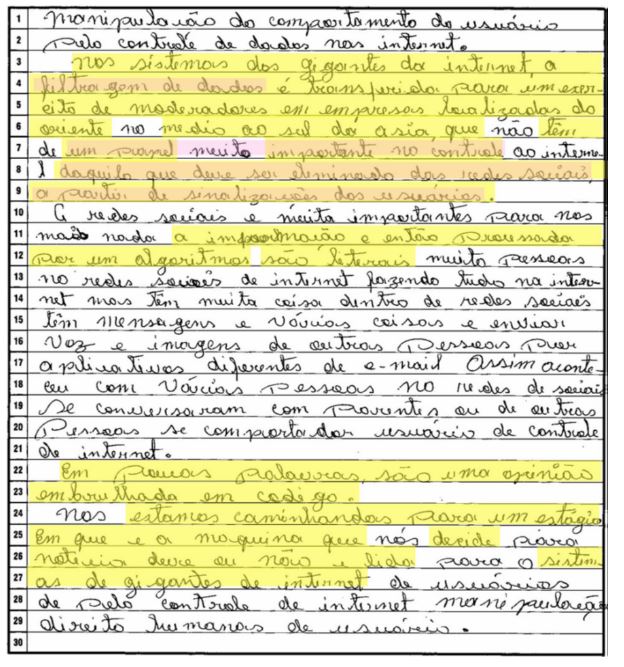 1 Manipulação do comportamento do usuário
2 pelo controle de dados nas internet.
3 Nos sistemas dos gigantes da internet, a
4 filtragem de dados é transferida para um exer-
5 cito de moderadores em empresas localizadas do
6 oriente no medio ao sul da asia, que não têm
7 de um papel meuito importante no controle ao interne-
8 l daquilo que deve ser eliminado das redes sociais,
9 a partir de sinalizações dos usuários.
10 G redes sociais e meuita importantes para nos
11 mais nada a imformação e então processada
12 por um algoritmos são literais muito pessoas
13 no redes sociais de internet fazendo tudo na inter-
14 net mas têm muita coisa dentro de redes sociais
15 têm mensagens e várias coisas e enviar
16 Voz e imagens de outras Pessoas por
17 aplicativos diferentes de e-mail Assim aconte-
18 ceu com Várias pessoas no redes de sociais
19 Se conversaram com parentes ou de outras
20 Pessoas se comportador usuário de controle
21 de internet.
22 Em poucas palavras, são uma opinião
23 embrulhada em codigo.
24 Nos estamos caminhandas para um estágio
25 Em que e a maquina que nós decide para
26 noticia deve ou não e lida para o sistim
27 as de gigantes de internet de usuários
28 de pelo controle de internet manipulação
29 direito humanas de usuário.
30